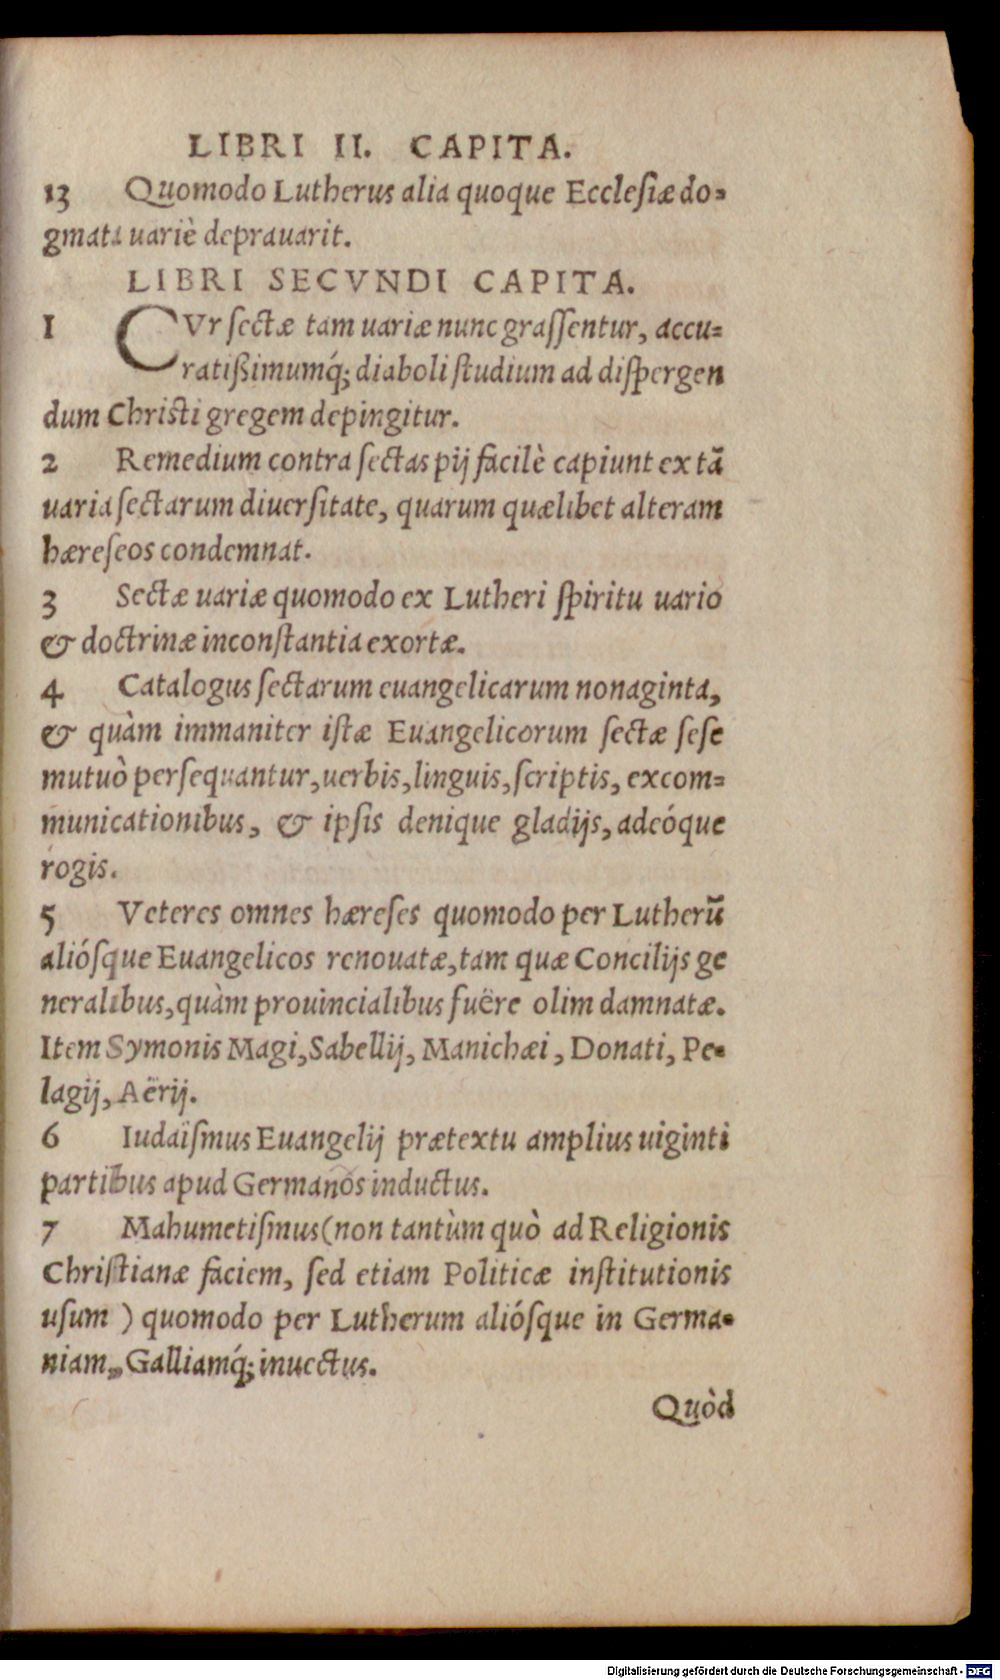 LIBRI II. CAPITA.
13 Quomodo Lutherus alia quoque Ecclesiæ do=
gmata uariè deprauarit.
LIBRI SECVNDI CAPITA.
1 CVr ſectæ tam uariæ nunc graſſentur, accu=
ratißimumq́; diaboli ſtudium ad diſpergen
dum Chriſti gregem depingitur.
2 Remedium contra ſectas pij facilè capiunt ex tã
uaria ſectarum diuerſitate, quarum quælibet alteram
hæreſeos condemnat.
3 Sectæ uariæ quomodo ex Lutheri ſpiritu uario
& doctrinæ inconſtantia exortæ.
4 Catalogus ſectarum euangelicarum nonaginta,
& quàm immaniter iſtæ Euangelicorum ſectæ ſeſe
mutuò perſequantur, uerbis, linguis, ſcriptis, excom=
municationibus, & ipſis denique gladijs, adeóque
rogis.
5 Veteres omnes hæreſes quomodo per Lutherũ
alióſque Euangelicos renouatæ, tam quæ Concilijs ge
neralibus, quàm prouincialibus fuëre olim damnatæ.
Item Symonis Magi, Sabellij, Manichæi, Donati, Pe=
lagij, Aërij.
6 Iudaïſmus Euangelij prætextu amplius uiginti
partibus apud Germanos inductus.
7 Mahumetiſmus (non tantùm quò ad Religionis
Chriſtianæ faciem, ſed etiam Politicæ inſtitutionis
uſum) quomodo per Lutherum alióſque in Germa=
niam, Galliamq́; inuectus.
Quòd
Digitalisierung gefördert durch die Deutsche Forschungsgemeinschaft - DFG